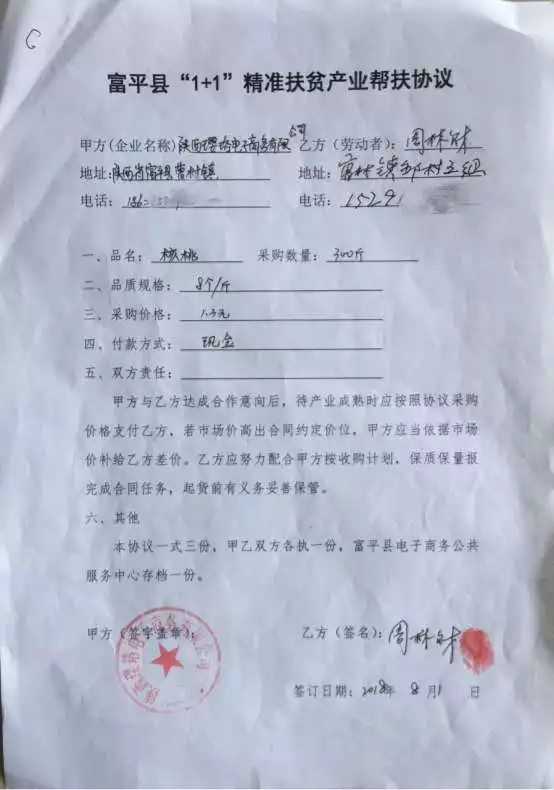 富平县“1+1”精准扶贫产业帮扶协议
甲方(企业名称)陕西璎珞电子商务有限公司 乙方(劳动者):周林
地址:陕西省富平县曹村镇 地址:曹村镇 村五组
电话:186 电话:15291
一、品名:核桃 采购数量:300斤
二、品质规格:8个/斤
三、采购价格:1.3元
四、付款方式:现金
五、双方责任:
甲方与乙方达成合作意向后,待产业成熟时应按照协议采购
价格支付乙方,若市场价高出合同约定价位,甲方应当依据市场
价补给乙方差价。乙方应努力配合甲方按收购计划,保质保量报
完成合同任务,起货前有义务妥善保管。
六、其他
本协议一式三份,甲乙双方各执一份,富平县电子商务公共
服务中心存档一份。
甲方(签字盖章): 乙方(签名):周林
签订日期:2018年 8月1 日